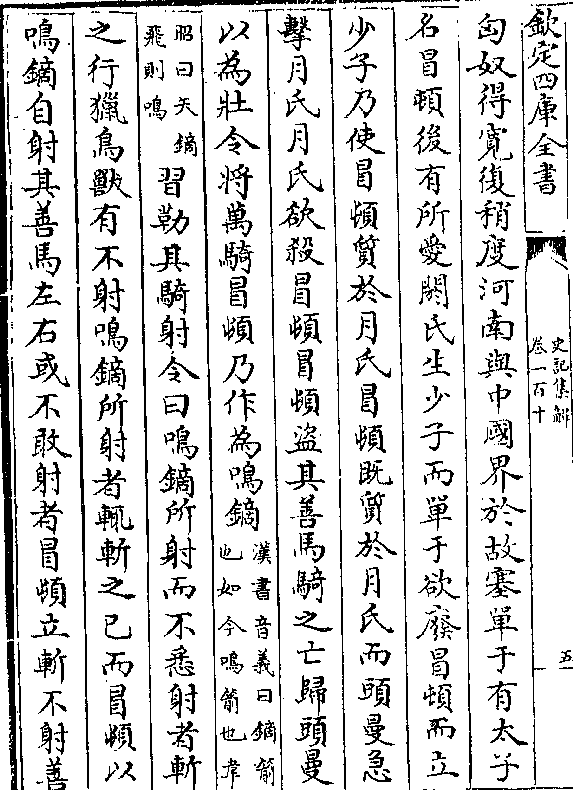 欽定四庫全書
史記集解
卷一百十
五
匈奴得寛復稍度河南與中國界於故塞單于有太子
名冒頓後有所愛閼氏生少子而單于欲廢冒頓而立
少子乃使冒頓質於月氏冒頓既質於月氏而頭曼急
擊月氏月氏欲殺冒頓冒頓盜其善馬騎之亡歸頭曼
以為壯令將萬騎冒頓乃作為鳴鏑漢書音義曰鏑箭也如今鳴箭也韋
昭曰矢鏑飛則鳴習勒其騎射令曰鳴鏑所射而不悉射者斬
之行獵鳥獸有不射鳴鏑所射者輒斬之已而冒頓以
鳴鏑自射其善馬左右或不敢射者冒頓立斬不射善